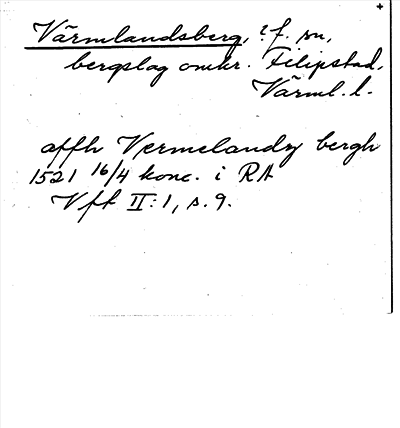 Värmlandsberg, ?f. sn,
bergslag omkr. Filipstad,
Värml. l.
affh Vermelandz bergh
1521 16/4 konc. i RA
Vff II:1, s. 9.